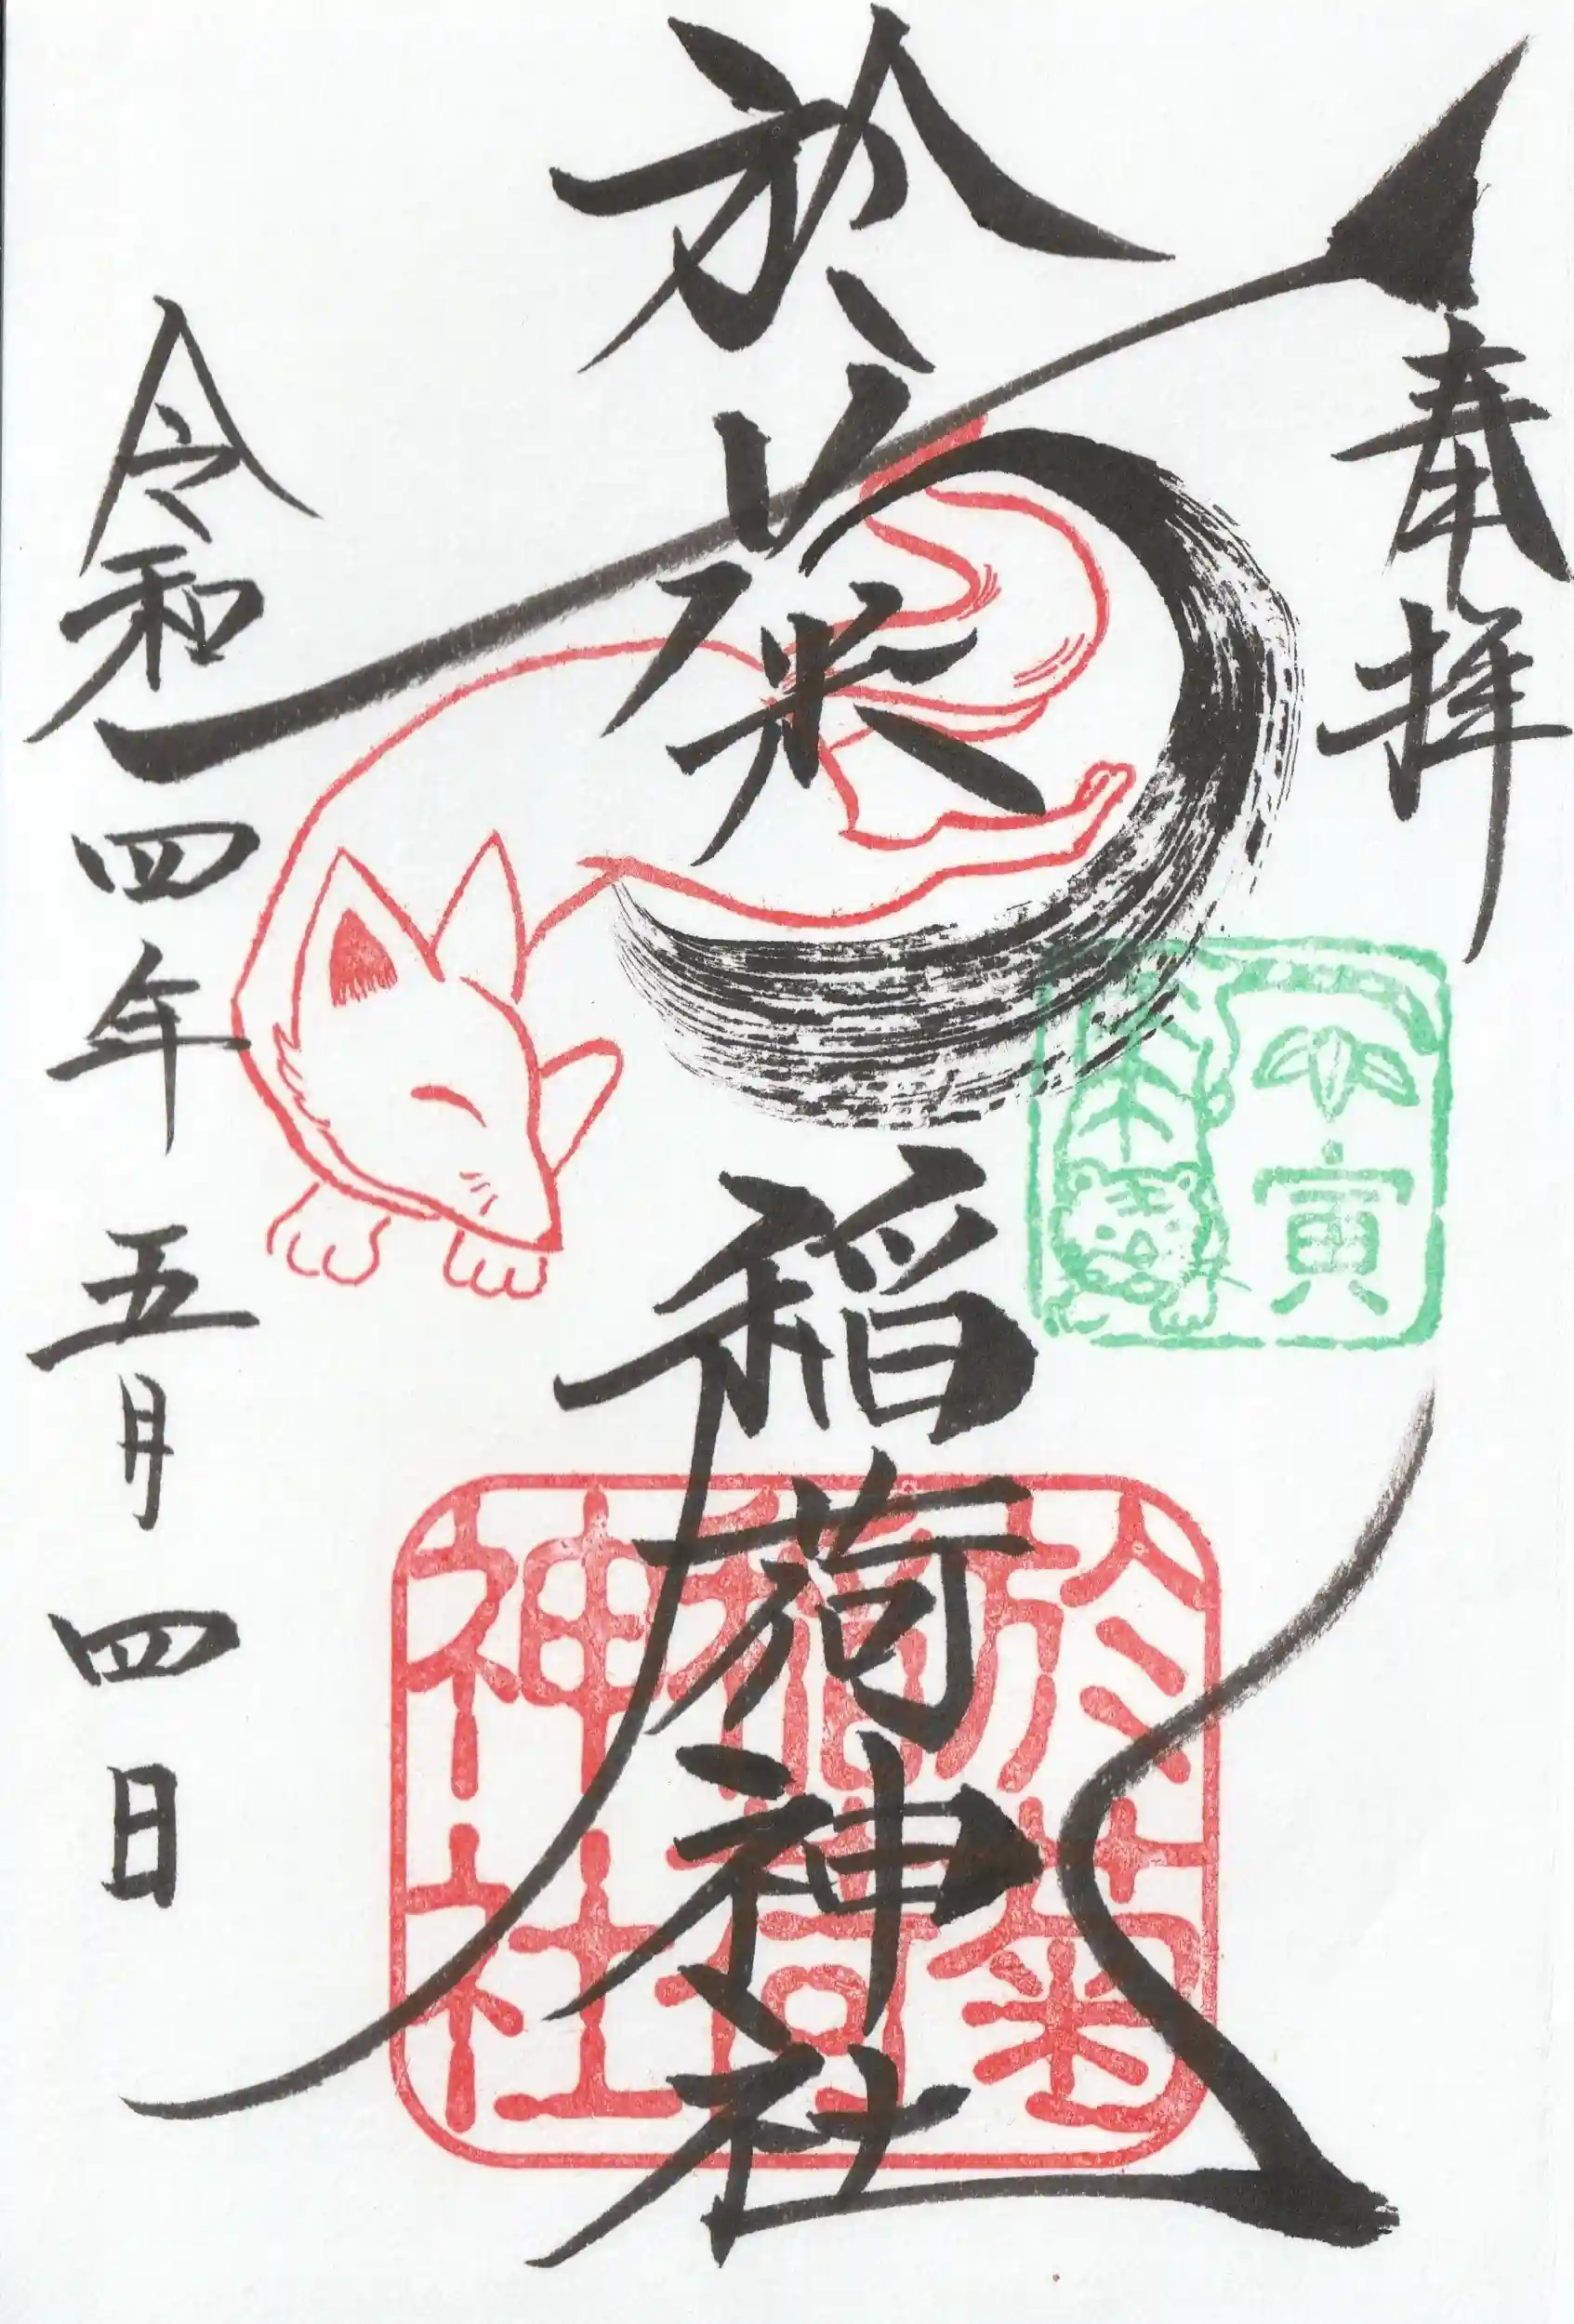 奉拝
壬寅
於菊稲荷神社
於菊
稲荷
神社
令和四年五月四日